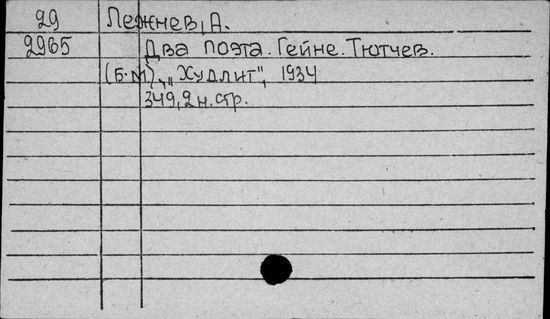 29 Лежнев, А.
2965 Два поэта. Гейне. Тютчев.
(Б.М), „Худлит", 1934
349,2 н. стр.